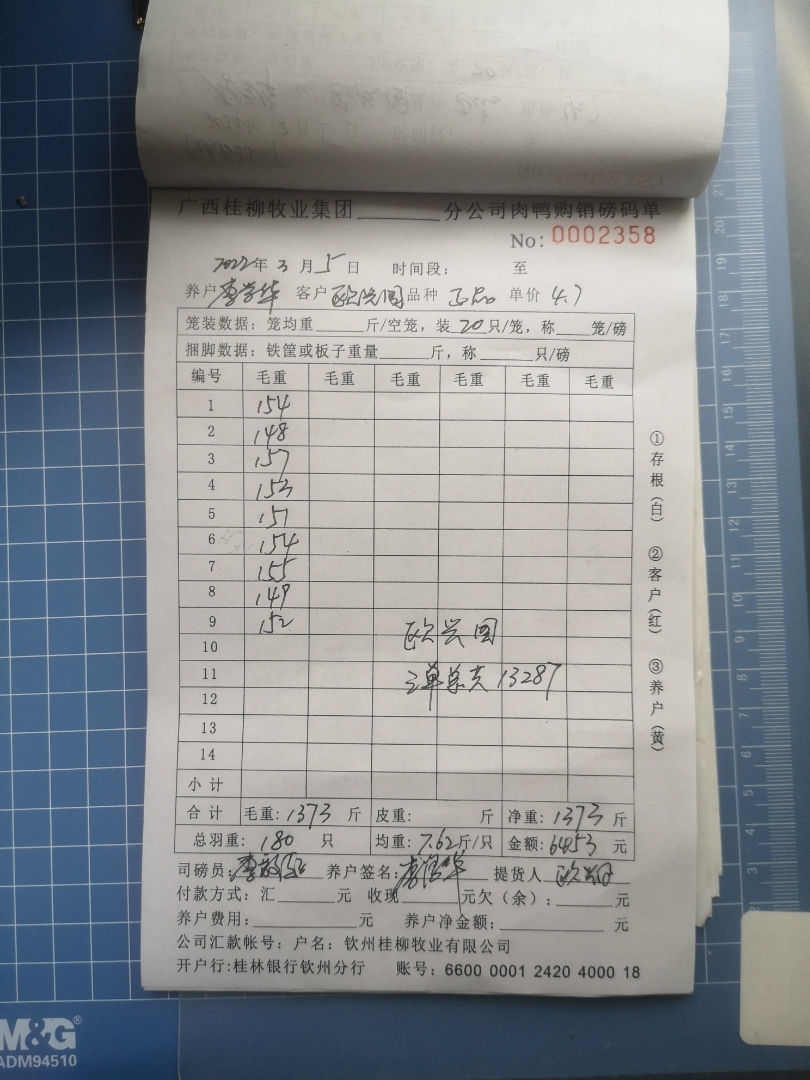 广西桂柳牧业集团________分公司肉鸭购销磅码单
No: 0002358
2022年 3 月 5 日 时间段: 至
养户 李学华 客户 欧兴国 品种 正品 单价 4.7
笼装数据: 笼均重______斤/空笼, 装 20 只/笼, 称____笼/磅
捆脚数据: 铁筐或板子重量______斤, 称______只/磅
编号 毛重 毛重 毛重 毛重 毛重 毛重
1 154
2 148
3 157
4 153
5 151
6 154
7 155
8 149
9 152
欧兴国
10
11 三单总共13287
12
13
14
小计
合计 毛重: 1373 斤 皮重: 斤 净重: 1373 斤
总羽重: 180 只 均重: 7.62 斤/只 金额: 6453 元
司磅员: 养户签名: 提货人
付款方式: 汇______元 收现______元欠(余): ______元
养户费用: ________元 养户净金额: ________元
公司汇款帐号: 户名: 钦州桂柳牧业有限公司
开户行:桂林银行钦州分行 账号: 6600 0001 2420 4000 18
①存根(白) ②客户(红) ③养户(黄)
M&G®
ADM94510